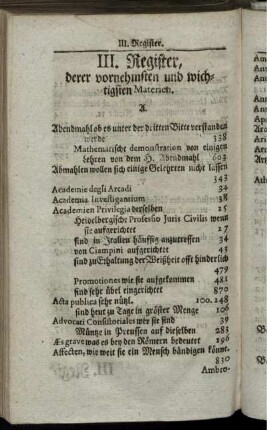 III. Register.
III. Register,
derer vornehmsten und wich-
tigsten Materien.
A.
Abendmahl ob es unter der dritten Bitte verstanden
werde 338
Mathematische demonstration von einigen
Lehren von dem H. Abendmahl 603
Abmahlen wollen sich einige Gelehrten nicht lassen
343
Academie degli Arcadi 34
Academia Investigantium 38
Academien Privilegia derselben 15
Heidelbergische Professio Juris Civilis wenn
sie aufgerichtet 17
sind in Italien häuffig anzutreffen 34
von Ciampini aufgerichtet 43
sind zu Erhaltung der Weißheit offt hinderlich
479
Promotiones wie sie aufgekommen 481
sind sehr übel eingerichtet 870
Acta publica sehr nützl. 100. 248
sind heut zu Tage in gröster Menge 106
Advocati Consistoriales wer sie sind 39
Müntze in Preussen auf dieselben 283
Æs grave was es bey den Römern bedeutet 196
Affecten, wie weit sie ein Mensch bändigen könne.
830
Ambro-